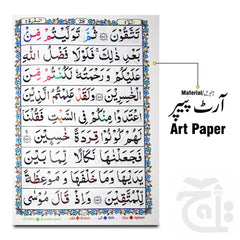 تَتَّقُوْنَ ثُمَّ تَوَلَّيْتُمْ مِّنْۢ
بَعْدِ ذٰلِكَ فَلَوْلَا فَضْلُ اللّٰهِ
عَلَيْكُمْ وَرَحْمَتُهٗ لَكُنْتُمْ مِّنَ
الْخٰسِرِيْنَ وَلَقَدْ عَلِمْتُمُ الَّذِيْنَ
اعْتَدَوْا مِنْكُمْ فِى السَّبْتِ فَقُلْنَا
لَهُمْ كُوْنُوْا قِرَدَةً خٰسِـِٕيْنَ
فَجَعَلْنٰهَا نَكَالًا لِّمَا بَيْنَ
يَدَيْهَا وَمَا خَلْفَهَا وَمَوْعِظَةً
لِّلْمُتَّقِيْنَ وَاِذْ قَالَ مُوْسٰى
Material
آرٹ پیپر
Art Paper